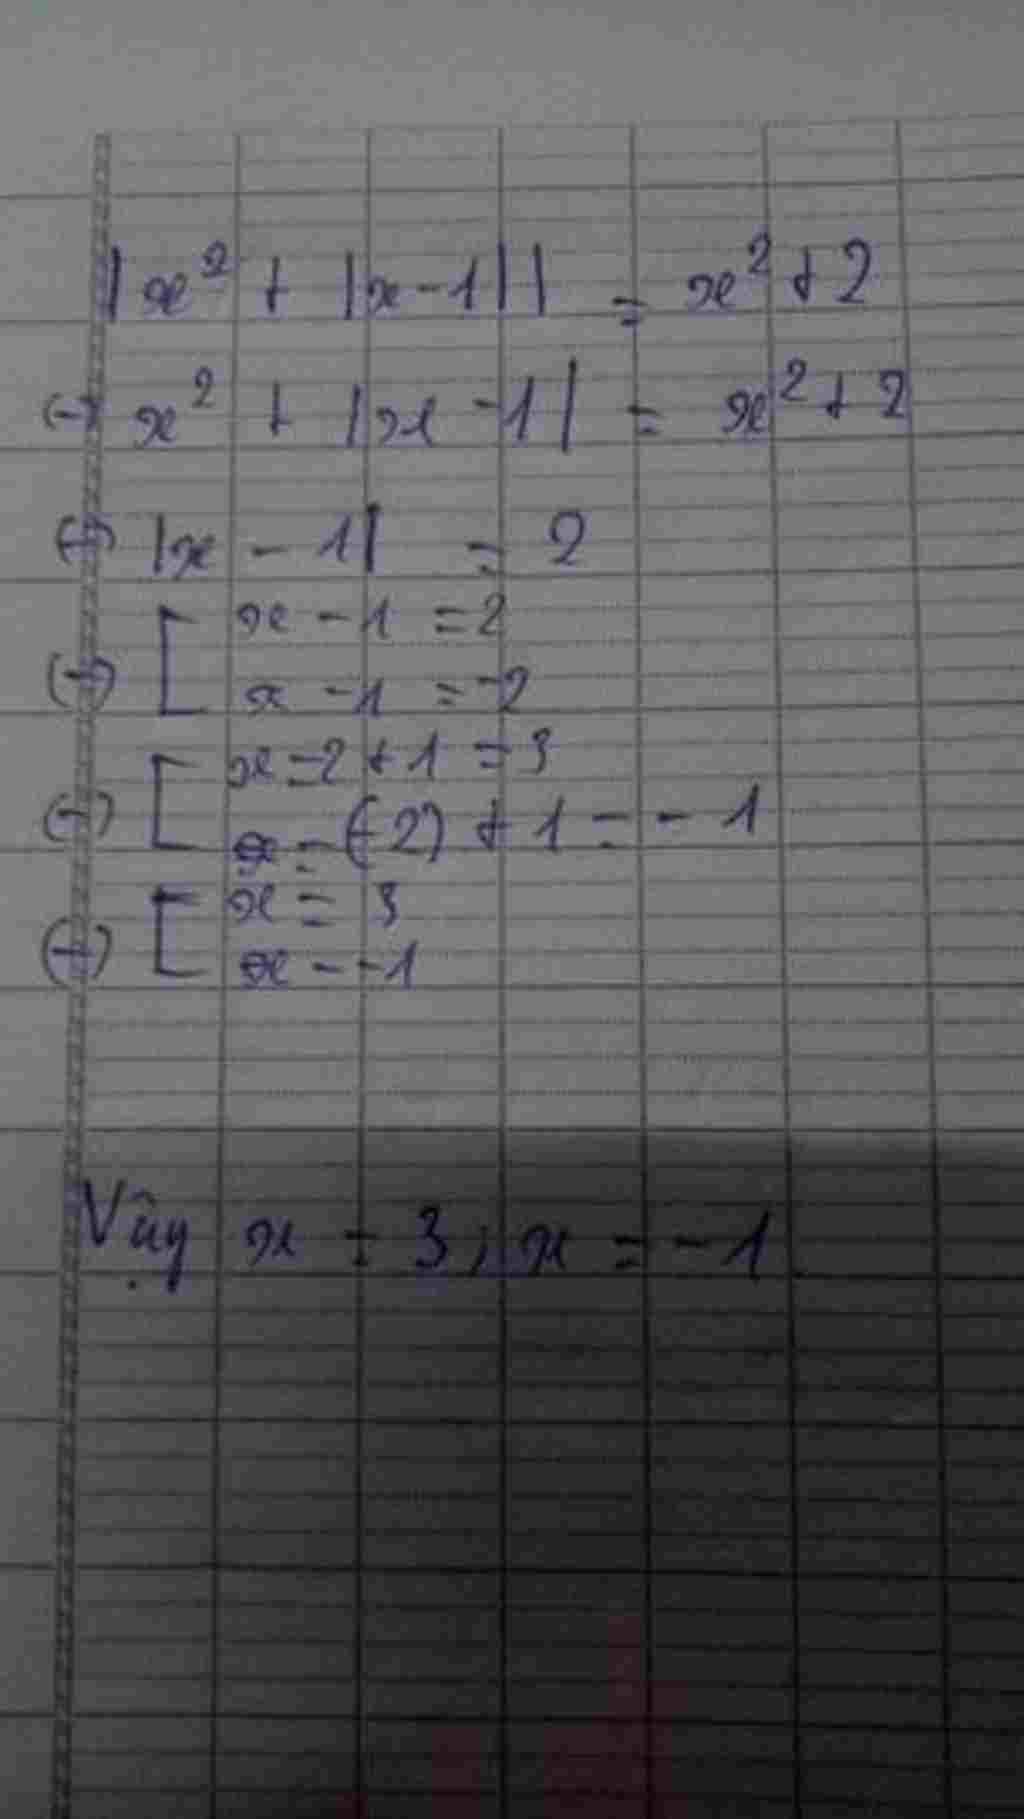 |x² + |x-1|| = x² + 2
(=) x² + |x - 1| = x² + 2
(=) |x - 1| = 2
(=) [ x - 1 = 2
x - 1 = -2
(=) [ x = 2 + 1 = 3
x = (-2) + 1 = - 1
(=) [ x = 3
x = -1
Vậy x = 3 ; x = - 1